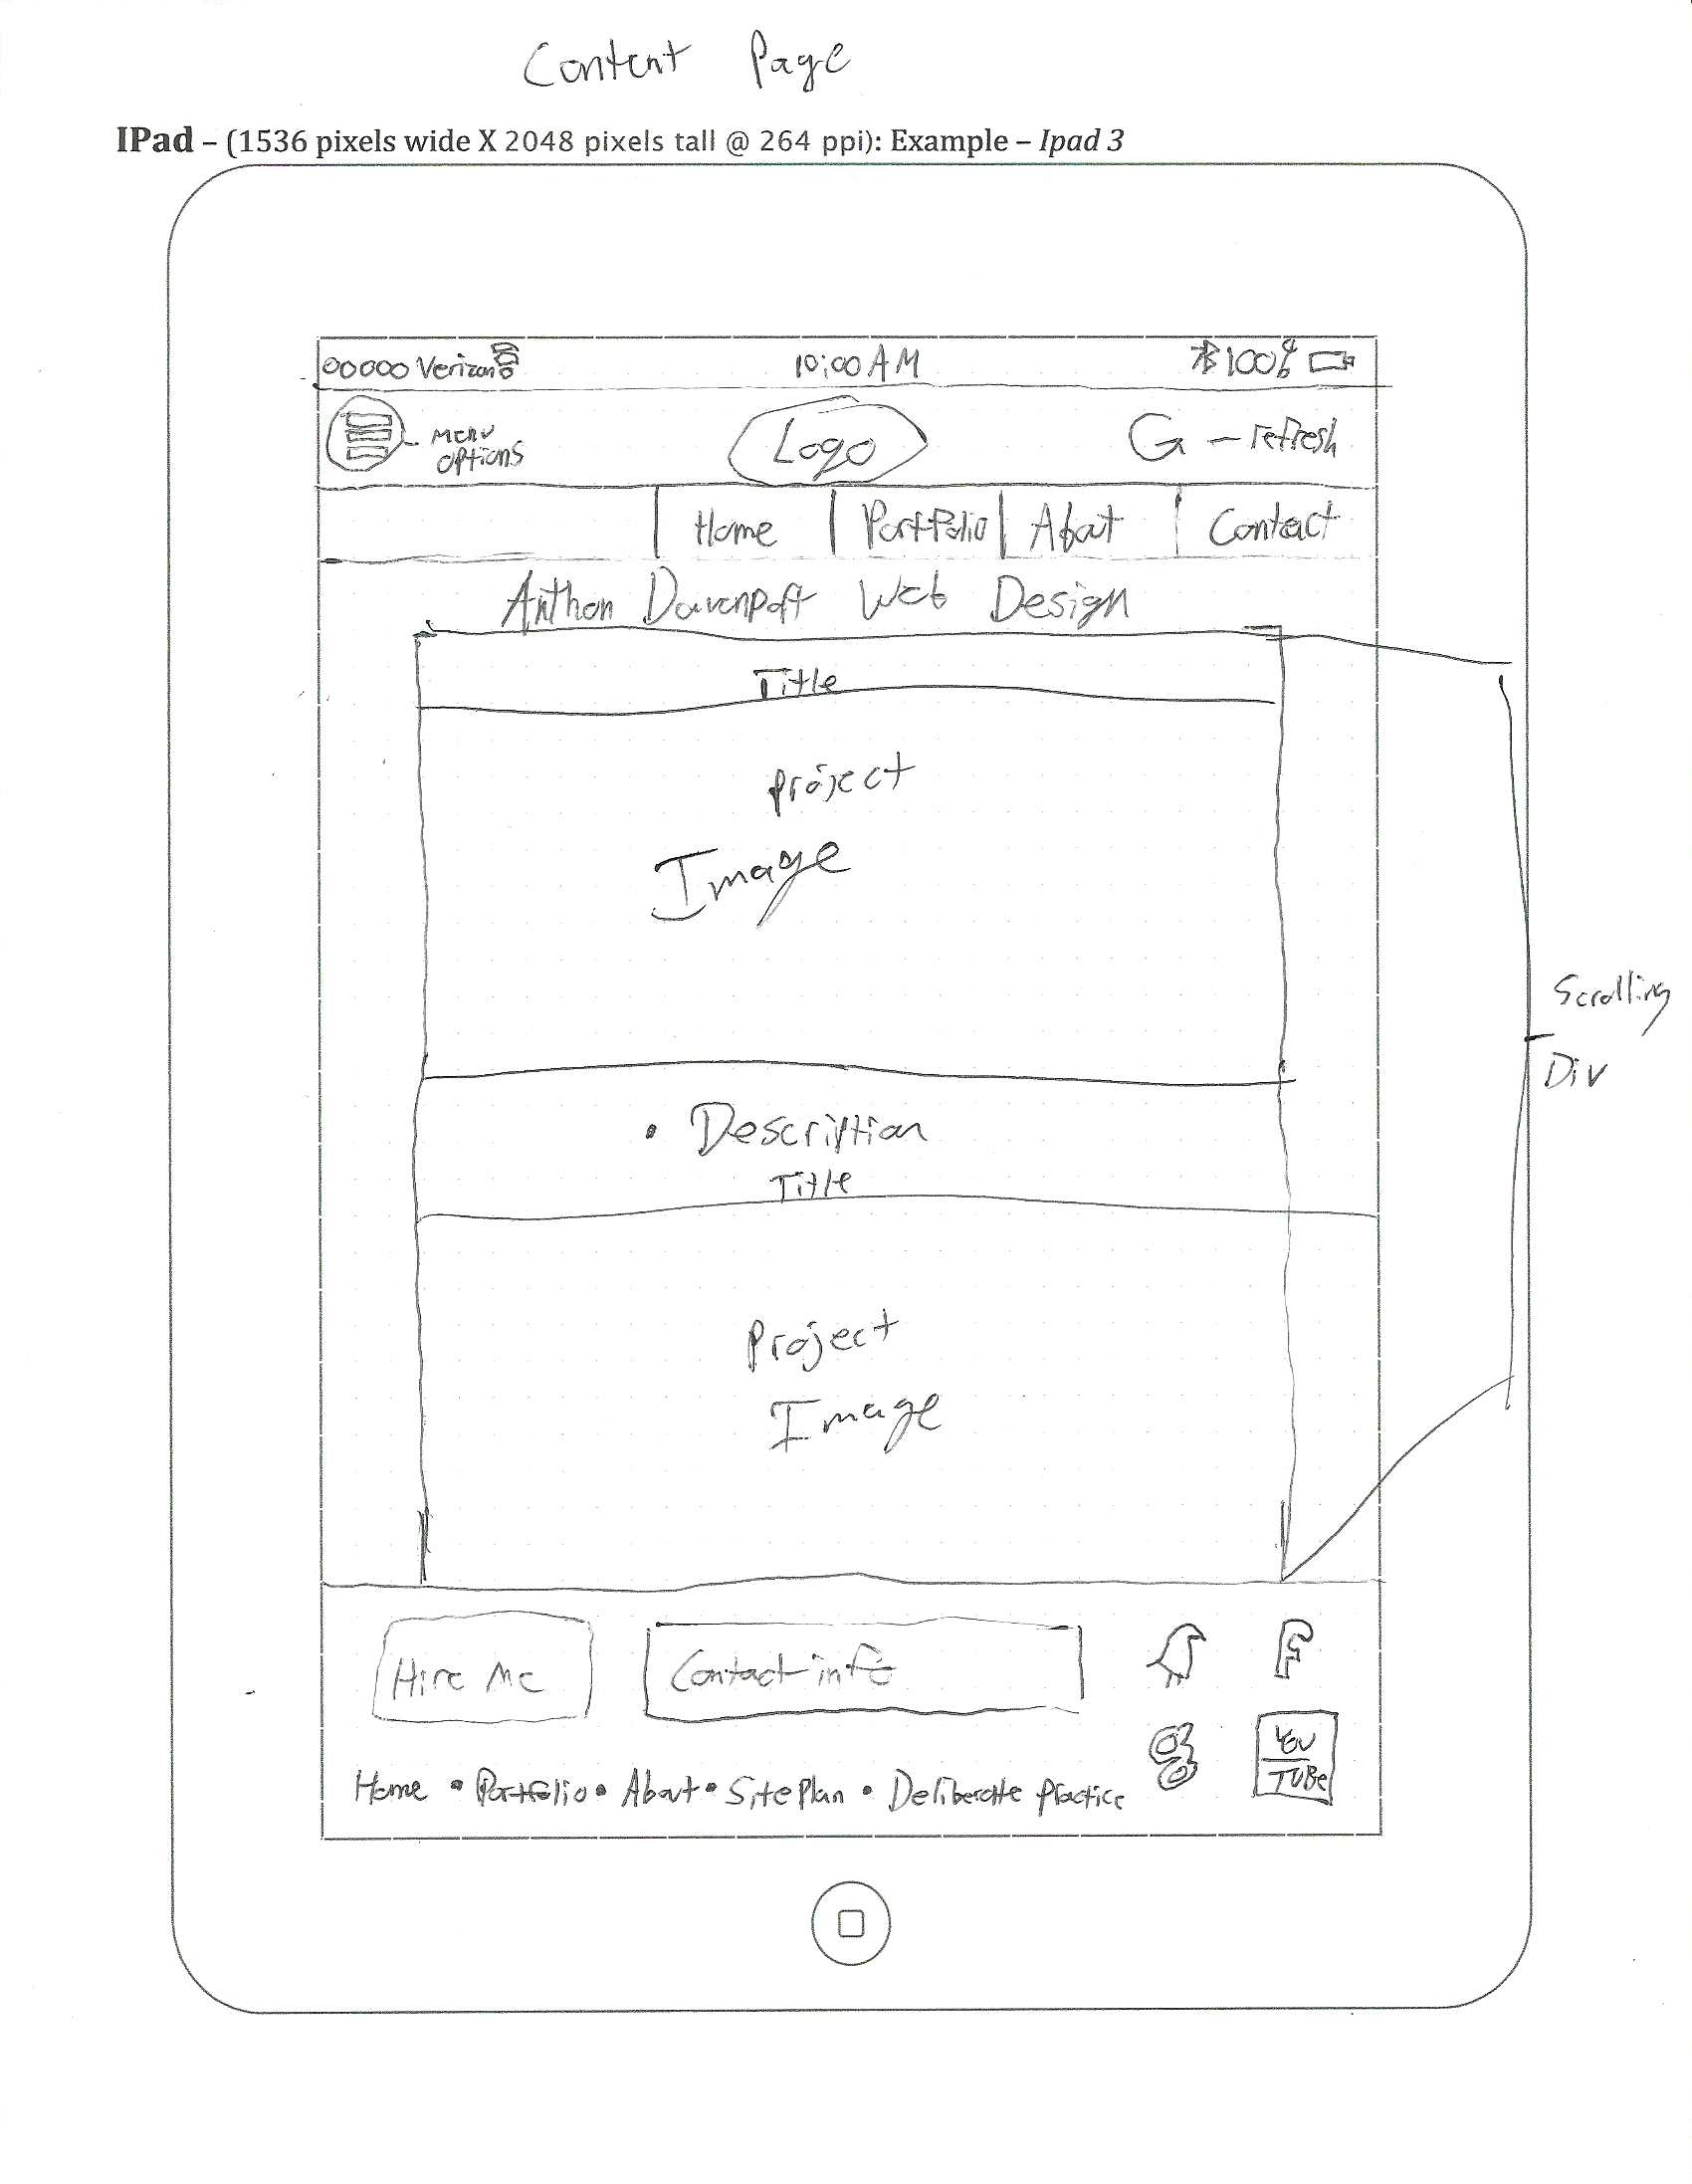 Content Page
IPad – (1536 pixels wide X 2048 pixels tall @ 264 ppi): Example – Ipad 3
00000 Verizon 10:00 AM 100%
Menu options Logo G – refresh
Home Portfolio About Contact
Anthon Davenport Web Design
Title
Project
Image
Scrolling
Div
• Description
Title
Project
Image
Hire Me Contact info F
g You Tube
Home • Portfolio • About • Site Plan • Deliberate Practice